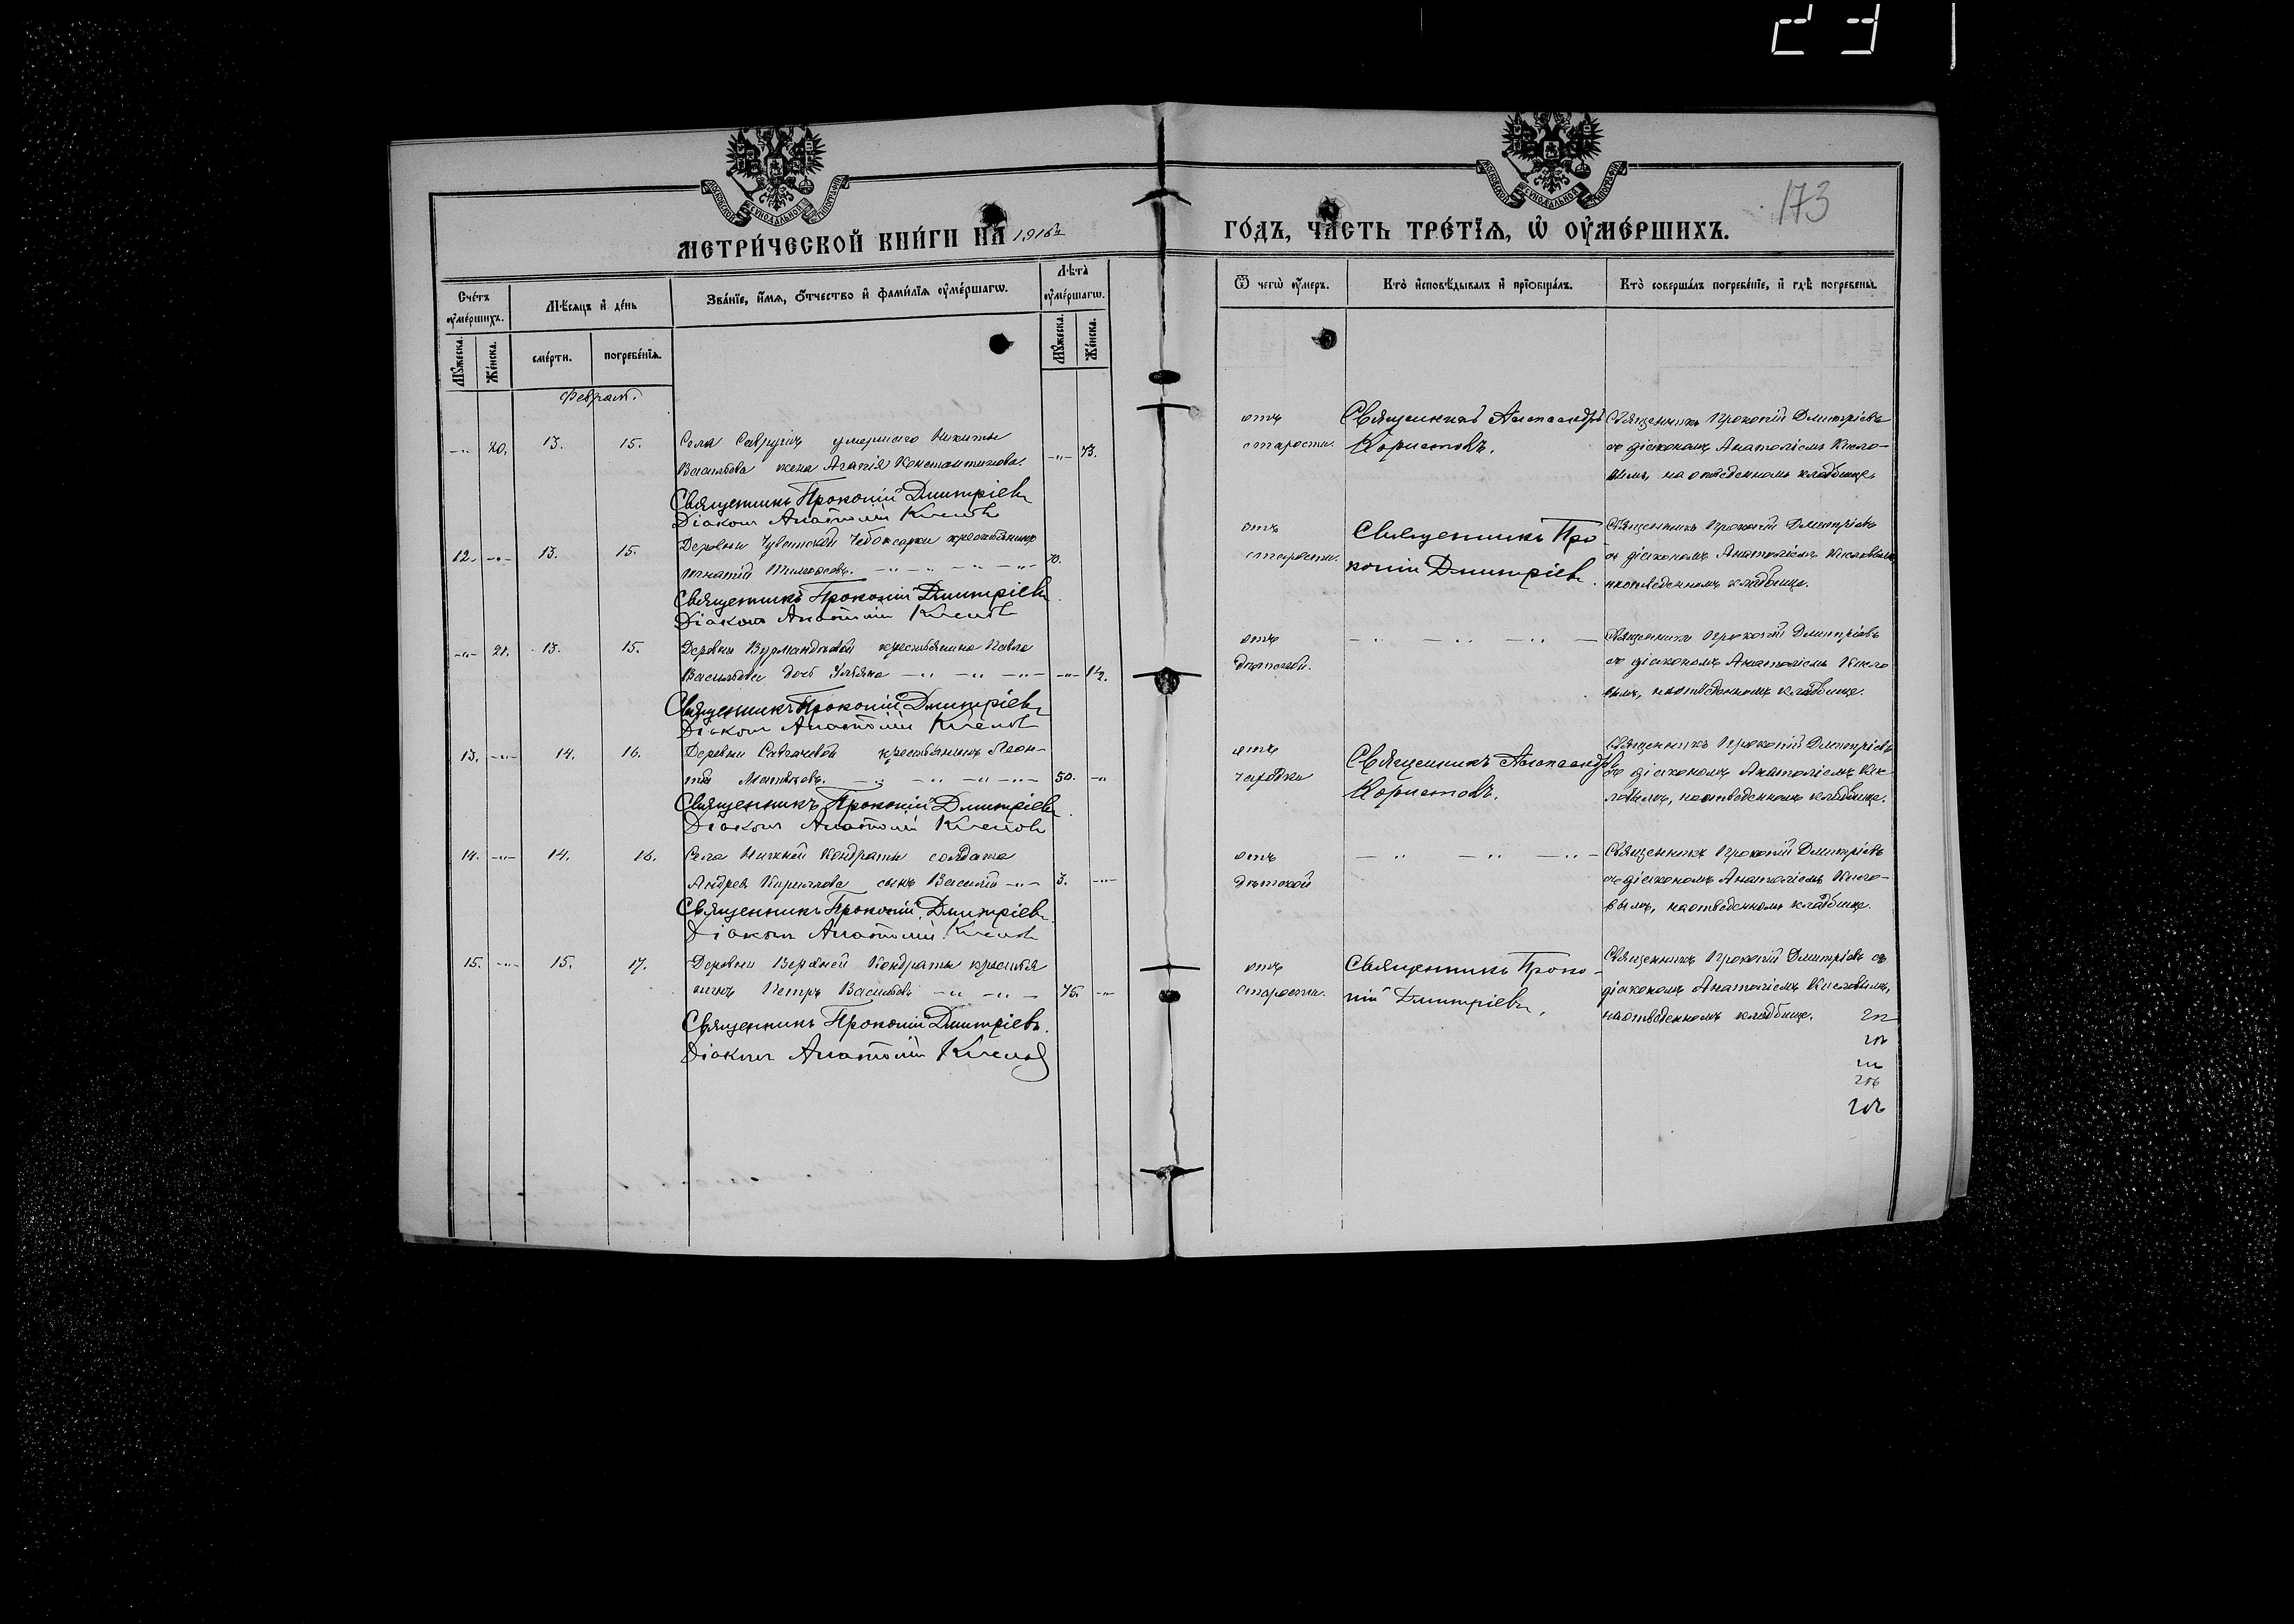 23
173
МЕТРИ́ЧЕСКОЙ КНИ́ГИ НА 1916
ГО́ДЪ, ЧА́СТЬ ТРЕ́ТЇѦ, Ѡ ОУ҆МЕ́РШИХЪ.
Сче́тъ оу҆ме́ршихъ.
Мѣ́сяцъ и҆ де́нь
Зва́нїе, и҆́мѧ, ѻ҆́тчество и҆ фами́лїѧ оу҆ме́ршагѡ.
Лѣ́та оу҆ме́ршагѡ.
Ѿ чегѡ̀ оу҆́меръ.
Кто̀ и҆сповѣ́дывалъ и҆ прїѡбща́лъ.
Кто̀ соверша́лъ погребе́нїе, и҆ гдѣ̀ погребены̀.
Мꙋ́жеска.
Же́нска.
сме́рти.
погребе́нїѧ.
Мꙋ́жеска.
Же́нска.
20. 13. 15. Села умершаго Никиты
Васильева жена Агапія Константинова. 73.
Священникъ Прокопій Дмитріевъ
Діаконъ Анатолій
отъ
старости.
Священникъ Александръ
Священникъ Прокопій Дмитріевъ
съ діакономъ Анатоліемъ Кисло-
вымъ, на отведенномъ кладбище.
12. 13. 15. Деревни Чувашской Чебоксарки крестьянинъ
Игнатій 70.
Священникъ Прокопій Дмитріевъ
Діаконъ Анатолій
отъ
старости.
Священникъ Про-
копій Дмитріевъ.
Священникъ Прокопій Дмитріевъ
съ діакономъ Анатоліемъ Кисловымъ
на отведенномъ кладбище.
21. 13. 15. Деревни крестьянина Павла
Васильева дочь Ульяна 1/2.
Священникъ Прокопій Дмитріевъ
Діаконъ Анатолій
отъ
Священникъ Прокопій Дмитріевъ
съ діакономъ Анатоліемъ Кисло
вымъ, на отведенномъ кладбище.
13. 14. 16. Деревни крестьянинъ Леон-
тій 50.
Священникъ Прокопій Дмитріевъ.
Діаконъ Анатолій
отъ
чахотки
Священникъ Александръ
Священникъ Прокопій Дмитріевъ
съ діакономъ Анатоліемъ Кис
ловымъ, на отведенномъ кладбище.
14. 14. 16. Села Нижней Кондраты солдата
Андрея Кириллова сынъ Василій 3.
Священникъ Прокопій Дмитріевъ.
Діаконъ Анатолій
отъ
Священникъ Прокопій Дмитріевъ
съ діакономъ Анатоліемъ Кисло-
вымъ, на отведенномъ кладбище.
15. 15. 17. Деревни Верхней Кондраты крестья
нинъ Петръ Васильевъ 75.
Священникъ Прокопій Дмитріевъ.
Діаконъ Анатолій
отъ
старости.
Священникъ Проко-
пій Дмитріевъ.
Священникъ Прокопій Дмитріевъ съ
діакономъ Анатоліемъ Кисловымъ,
на отведенномъ кладбище.